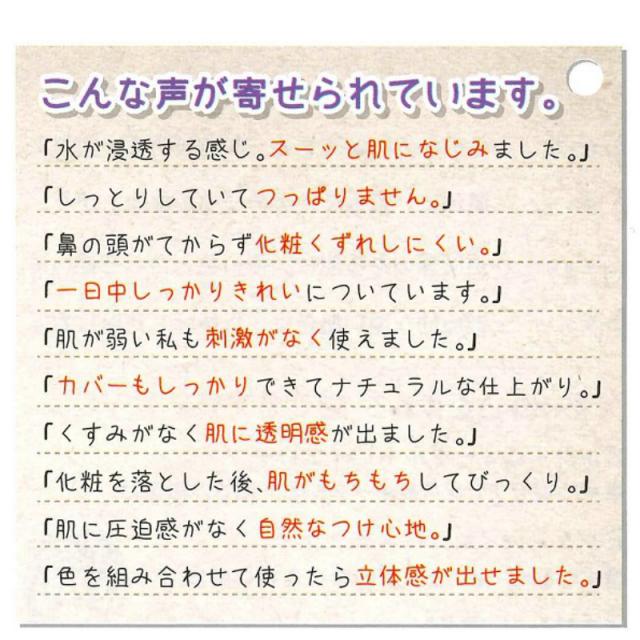 こんな声が寄せられています。
「水が浸透する感じ。スーッと肌になじみました。」
「しっとりしていてつっぱりません。」
「鼻の頭がてからず化粧くずれしにくい。」
「一日中しっかりきれいについています。」
「肌が弱い私も刺激がなく使えました。」
「カバーもしっかりできてナチュラルな仕上がり。」
「くすみがなく肌に透明感が出ました。」
「化粧を落とした後、肌がもちもちしてびっくり。」
「肌に圧迫感がなく自然なつけ心地。」
「色を組み合わせて使ったら立体感が出せました。」